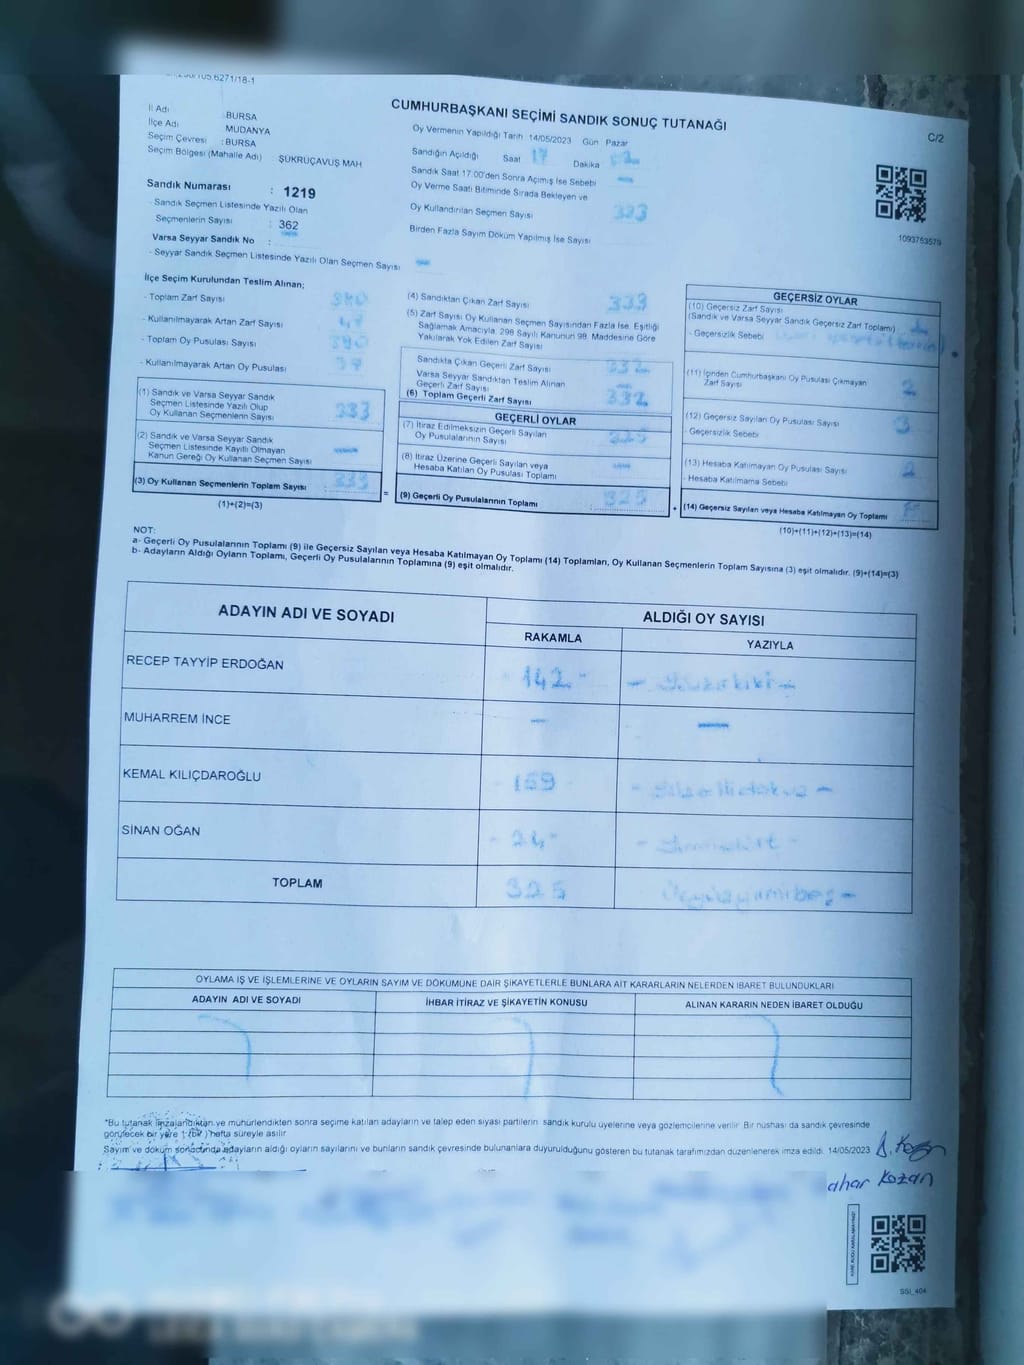 CUMHURBAŞKANI SEÇİMİ SANDIK SONUÇ TUTANAĞI
C/2
İl Adı BURSA
İlçe Adı MUDANYA
Seçim Çevresi : BURSA
Seçim Bölgesi (Mahalle Adı) : ŞÜKRÜÇAVUŞ MAH
Sandık Numarası : 1219
- Sandık Seçmen Listesinde Yazılı Olan
Seçmenlerin Sayısı : 362
Varsa Seyyar Sandık No :
- Seyyar Sandık Seçmen Listesinde Yazılı Olan Seçmen Sayısı
Oy Vermenin Yapıldığı Tarih 14/05/2023 Gün Pazar
Sandığın Açıldığı Saat 17 Dakika
Sandık Saat 17:00'den Sonra Açımış İse Sebebi
Oy Verme Saati Bitiminde Sırada Bekleyen ve
Oy Kullandırılan Seçmen Sayısı
Birden Fazla Sayım Döküm Yapılmış İse Sayısı
1093763579
İlçe Seçim Kurulundan Teslim Alınan;
- Toplam Zarf Sayısı
- Kullanılmayarak Artan Zarf Sayısı
- Toplam Oy Pusulası Sayısı
- Kullanılmayarak Artan Oy Pusulası
(1) Sandık ve Varsa Seyyar Sandık
Seçmen Listesinde Yazılı Olup
Oy Kullanan Seçmenlerin Sayısı 333
(2) Sandık ve Varsa Seyyar Sandık
Seçmen Listesinde Kayıtlı Olmayan
Kanun Gereği Oy Kullanan Seçmen Sayısı
(3) Oy Kullanan Seçmenlerin Toplam Sayısı 333
(1)+(2)=(3)
(4) Sandıktan Çıkan Zarf Sayısı 333
(5) Zarf Sayısı Oy Kullanan Seçmen Sayısından Fazla İse, Eşitliği
Sağlamak Amacıyla, 298 Sayılı Kanunun 98. Maddesine Göre
Yakılarak Yok Edilen Zarf Sayısı
Sandıkta Çıkan Geçerli Zarf Sayısı 332
Varsa Seyyar Sandıktan Teslim Alınan
Geçerli Zarf Sayısı
(6) Toplam Geçerli Zarf Sayısı 332
GEÇERLİ OYLAR
(7) İtiraz Edilmeksizin Geçerli Sayılan
Oy Pusulalarının Sayısı 325
(8) İtiraz Üzerine Geçerli Sayılan veya
Hesaba Katılan Oy Pusulası Toplamı
= (9) Geçerli Oy Pusulalarının Toplamı : 325
GEÇERSİZ OYLAR
(10) Geçersiz Zarf Sayısı
(Sandık ve Varsa Seyyar Sandık Geçersiz Zarf Toplamı)
- Geçersizlik Sebebi
(11) İçinden Cumhurbaşkanı Oy Pusulası Çıkmayan
Zarf Sayısı 2
(12) Geçersiz Sayılan Oy Pusulası Sayısı 3
- Geçersizlik Sebebi
(13) Hesaba Katılmayan Oy Pusulası Sayısı 2
- Hesaba Katılmama Sebebi
+ (14) Geçersiz Sayılan veya Hesaba Katılmayan Oy Toplamı
(10)+(11)+(12)+(13)=(14)
NOT:
a- Geçerli Oy Pusulalarının Toplamı (9) ile Geçersiz Sayılan veya Hesaba Katılmayan Oy Toplamı (14) Toplamları, Oy Kullanan Seçmenlerin Toplam Sayısına (3) eşit olmalıdır. (9)+(14)=(3)
b- Adayların Aldığı Oyların Toplamı, Geçerli Oy Pusulalarının Toplamına (9) eşit olmalıdır.
ADAYIN ADI VE SOYADI ALDIĞI OY SAYISI
RAKAMLA YAZIYLA
RECEP TAYYİP ERDOĞAN - 142 - - Yüzkırkiki -
MUHARREM İNCE - -
KEMAL KILIÇDAROĞLU - 159 - - Yüzellidokuz -
SİNAN OĞAN - 24 - - Yirmidört -
TOPLAM 325 Üçyüzyirmibeş -
OYLAMA İŞ VE İŞLEMLERİNE VE OYLARIN SAYIM VE DÖKÜMÜNE DAİR ŞİKAYETLERLE BUNLARA AİT KARARLARIN NELERDEN İBARET BULUNDUKLARI
ADAYIN ADI VE SOYADI İHBAR İTİRAZ VE ŞİKAYETİN KONUSU ALINAN KARARIN NEDEN İBARET OLDUĞU
*Bu tutanak imzalandıktan ve mühürlendikten sonra seçime katılan adayların ve talep eden siyasi partilerin sandık kurulu üyelerine veya gözlemcilerine verilir. Bir nüshası da sandık çevresinde
görülecek bir yere 1 (bir) hafta süreyle asılır
Sayım ve döküm sonucunda adayların aldığı oyların sayılarını ve bunların sandık çevresinde bulunanlara duyurulduğunu gösteren bu tutanak tarafımızdan düzenlenerek imza edildi. 14/05/2023
ahar Kozan
SSI_404